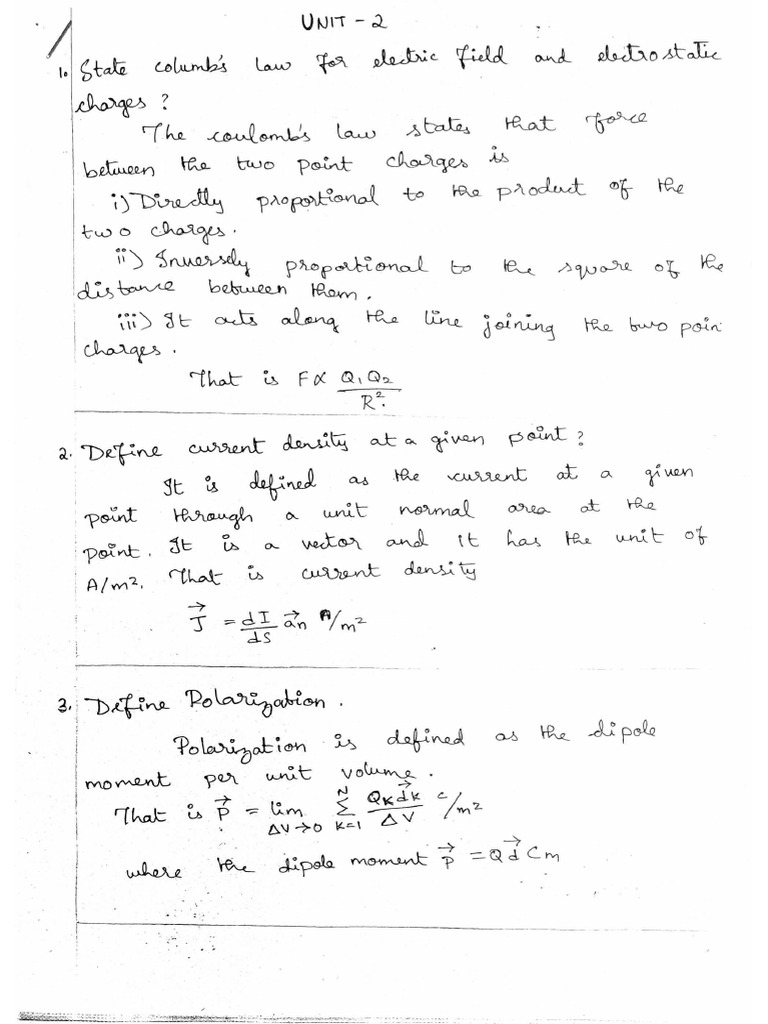 UNIT - 2
1. State columb's law for electric field and electrostatic
charges ?
The coulomb's law states that force
between the two point charges is
i) Directly proportional to the product of the
two charges.
ii) Inversely proportional to the square of the
distance between them.
iii) It acts along the line joining the two poin
charges.
That is F∝ Q1Q2/R².
2. Define current density at a given point ?
It is defined as the current at a given
point through a unit normal area at the
point. It is a vector and it has the unit of
A/m². That is current density
J⃗ = dI/dS a⃗n A/m²
3. Define Polarization.
Polarization is defined as the dipole
moment per unit volume.
That is P⃗ = lim ΔV→0 N∑k=1 Qk d⃗k/ΔV c/m²
where the dipole moment P⃗ = Qd⃗ Cm